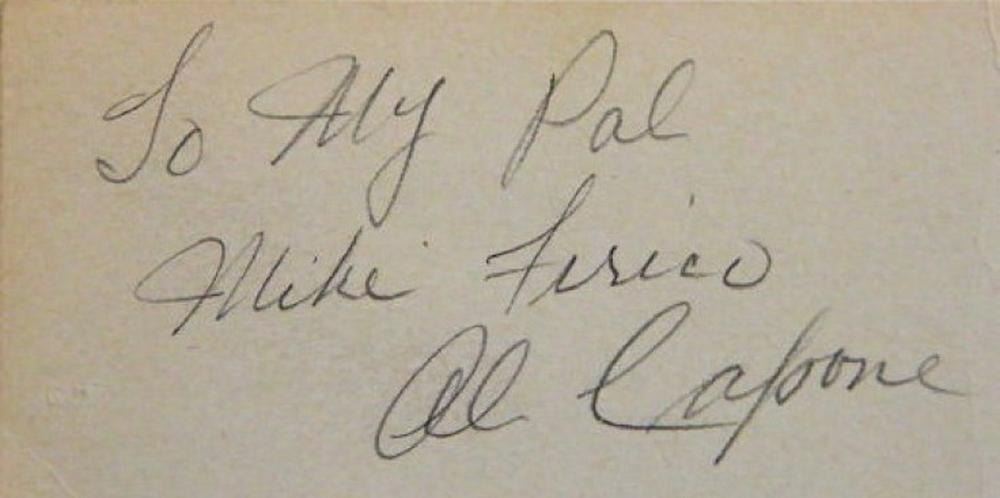 To My Pal
Mike Ferico
Al Capone